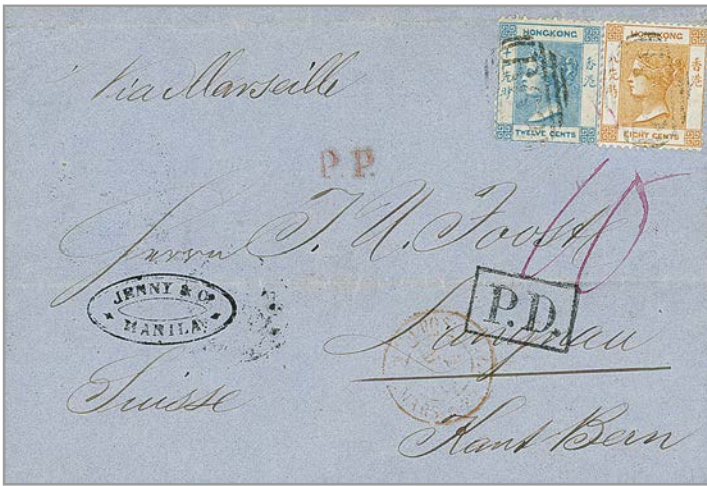 HONGKONG
香港
TWELVE CENTS
HONGKONG
香港
EIGHT CENTS
via Marseille
P.P.
Herrn J. U. Joost
60
JENNY & Co
MANILA
P.D.
Langnau
Suisse
Kant Bern